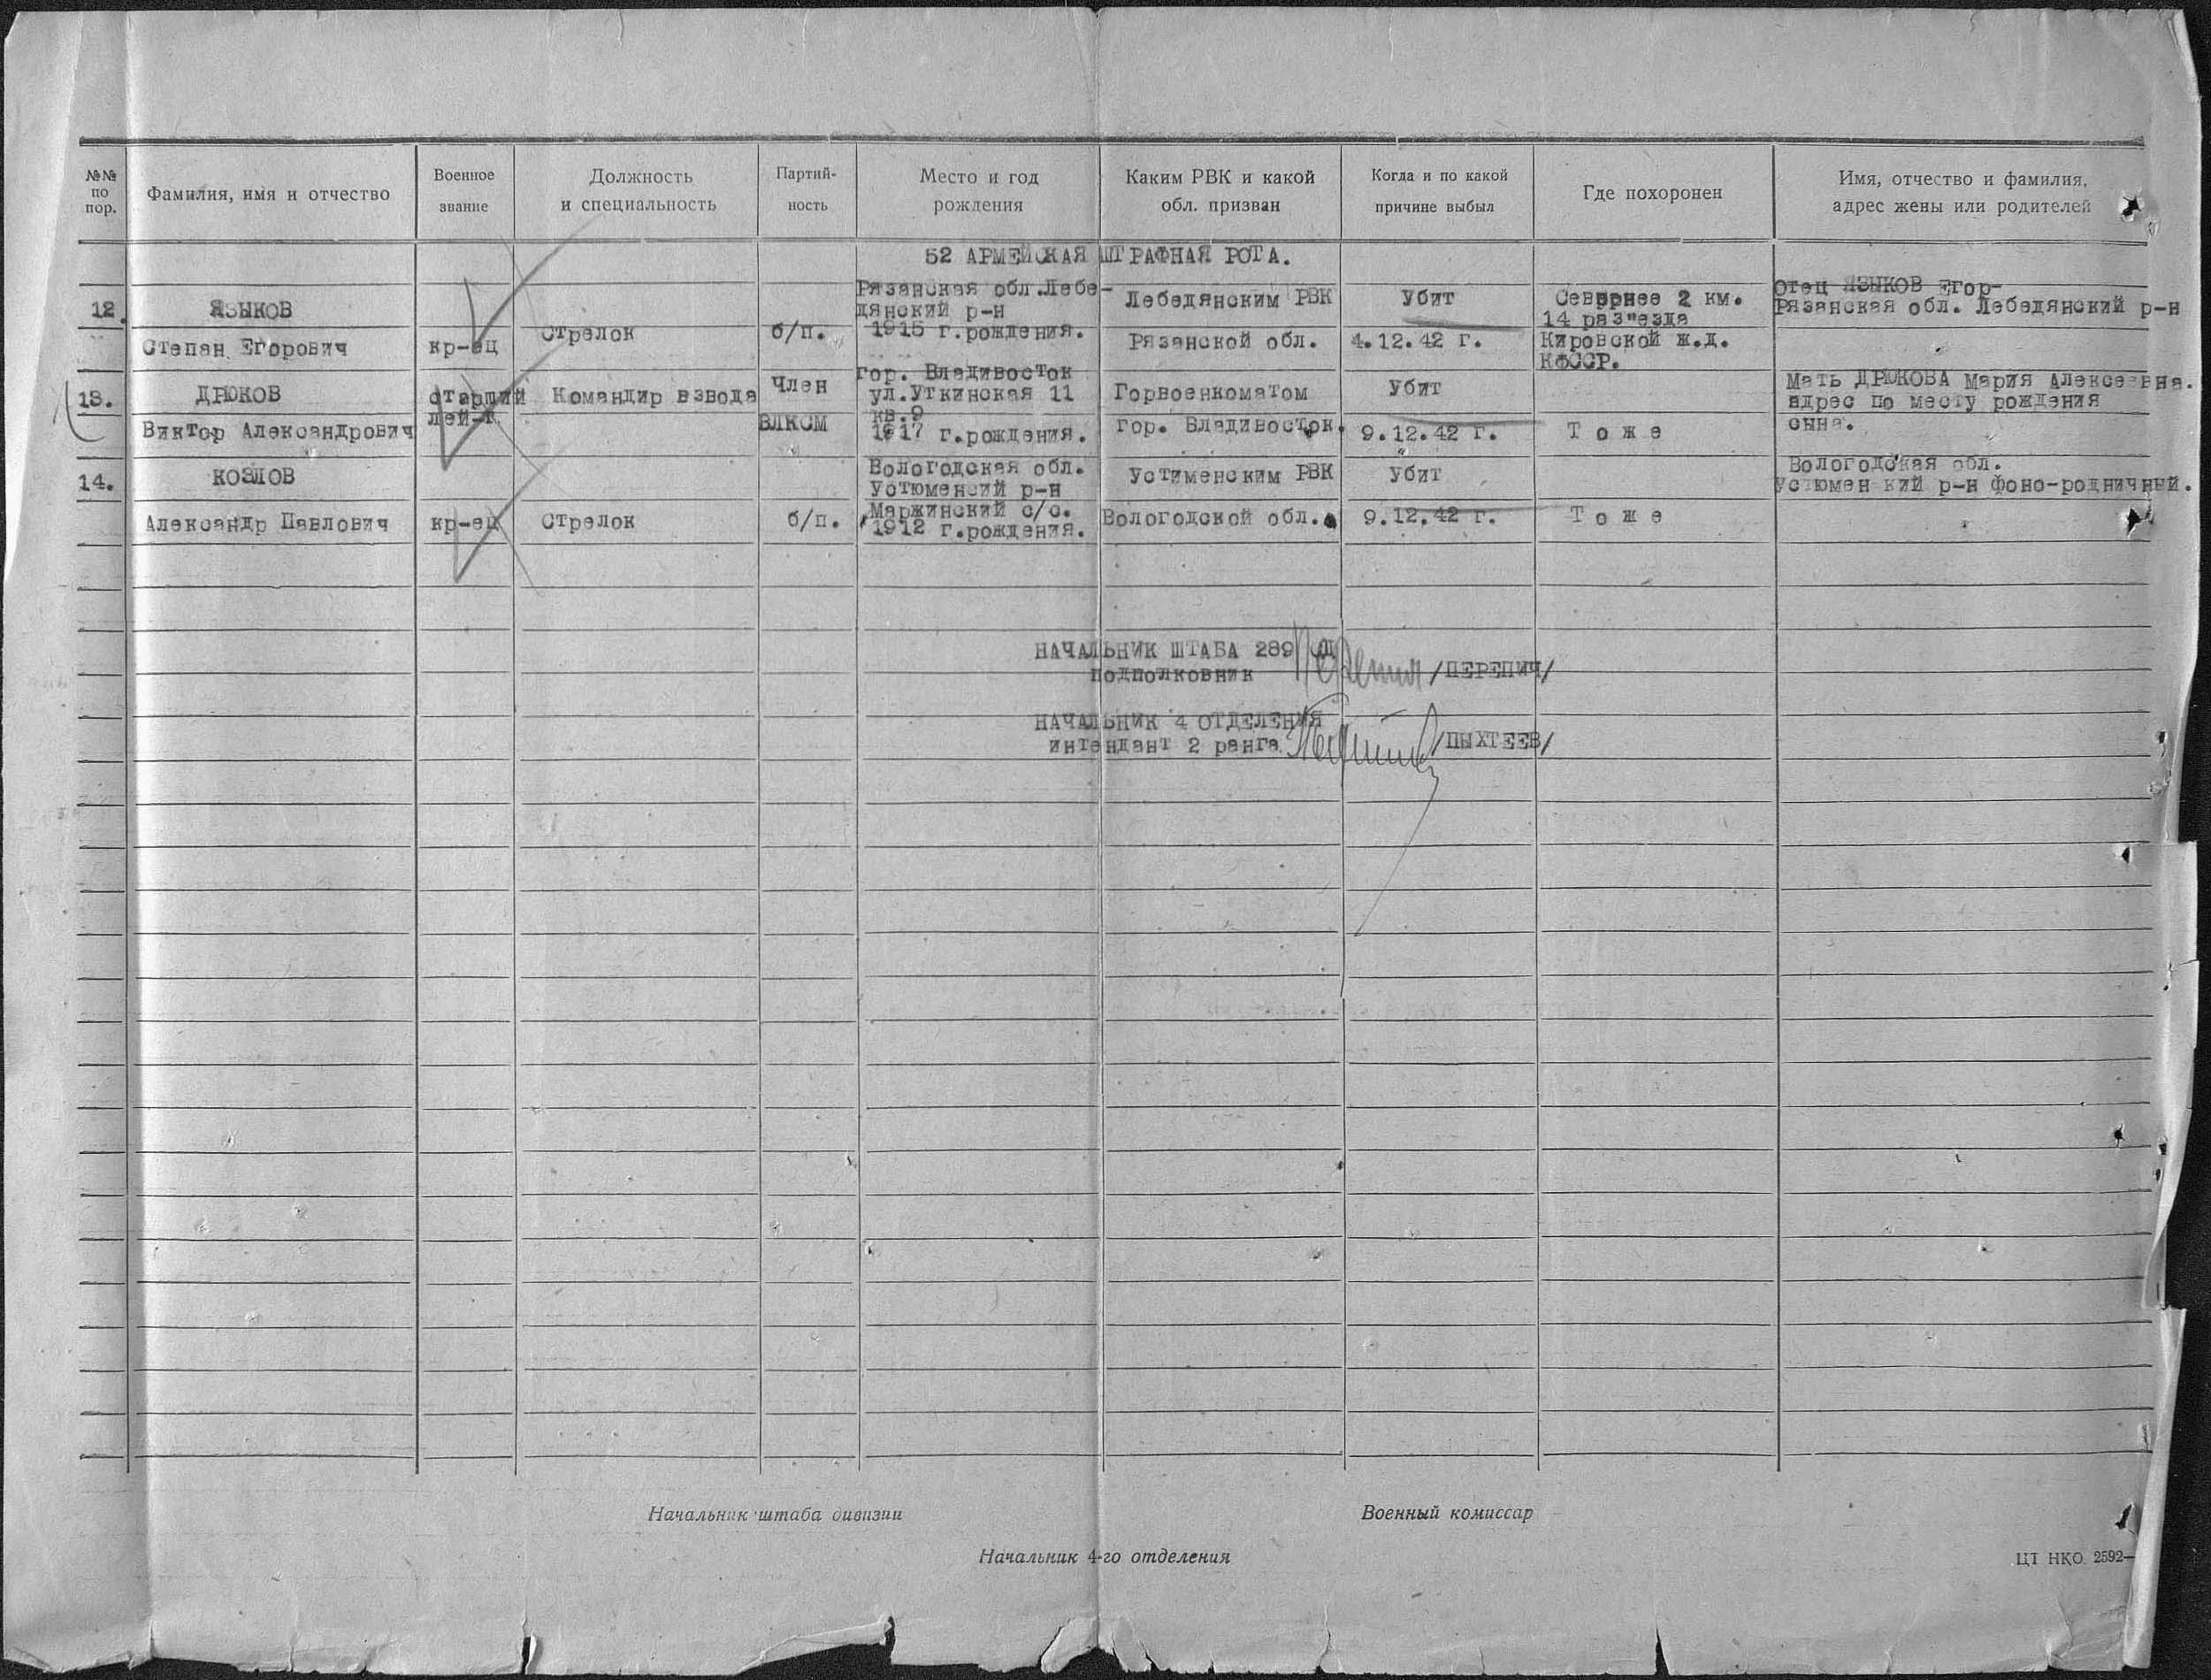 №№ по пор.
Фамилия, имя и отчество
Военное звание
Должность и специальность
Партий-ность
Место и год рождения
Каким РВК и какой обл. призван
Когда и по какой причине выбыл
Где похоронен
Имя, отчество и фамилия, адрес жены или родителей
52 АРМЕЙСКАЯ ШТРАФНАЯ РОТА.
12.
ЯЗЫКОВ
Степан Егорович
кр-ец
Стрелок
б/п.
Рязанская обл.Лебе-
дянский р-н
1915 г.рождения.
Лебедянским РВК
Рязанской обл.
Убит
4.12.42 г.
Севернее 2 км.
14 раз"езда
Кировской ж.д.
КФССР.
Отец ЯЗЫКОВ Егор-
Рязанская обл. Лебедянский р-н
13.
ДРЮКОВ
Виктор Александрович
старший
лей-т
Командир взвода
Член
ВЛКСМ
гор. Владивосток
ул.Уткинская 11
кв.9
1917 г.рождения.
Горвоенкоматом
гор. Владивосток.
Убит
9.12.42 г.
Т о ж е
Мать ДРЮКОВА Мария Алексеевна.
адрес по месту рождения
сына.
14.
КОЗЛОВ
Александр Павлович
кр-ец
Стрелок
б/п.
Вологодская обл.
Устюменсий р-н
Маржинский с/с.
1912 г.рождения.
Устименским РВК
Вологодской обл.
Убит
9.12.42 г.
Т о ж е
Вологодская обл.
Устюмен кий р-н фоно-родничный.
НАЧАЛЬНИК ШТАБА 289 СД
подполковник /ПЕРЕПИЧ/
НАЧАЛЬНИК 4 ОТДЕЛЕНИЯ
интендант 2 ранга /ПЫХТЕЕВ/
Начальник штаба дивизии
Военный комиссар
Начальник 4-го отделения
ЦТ НКО 2592—